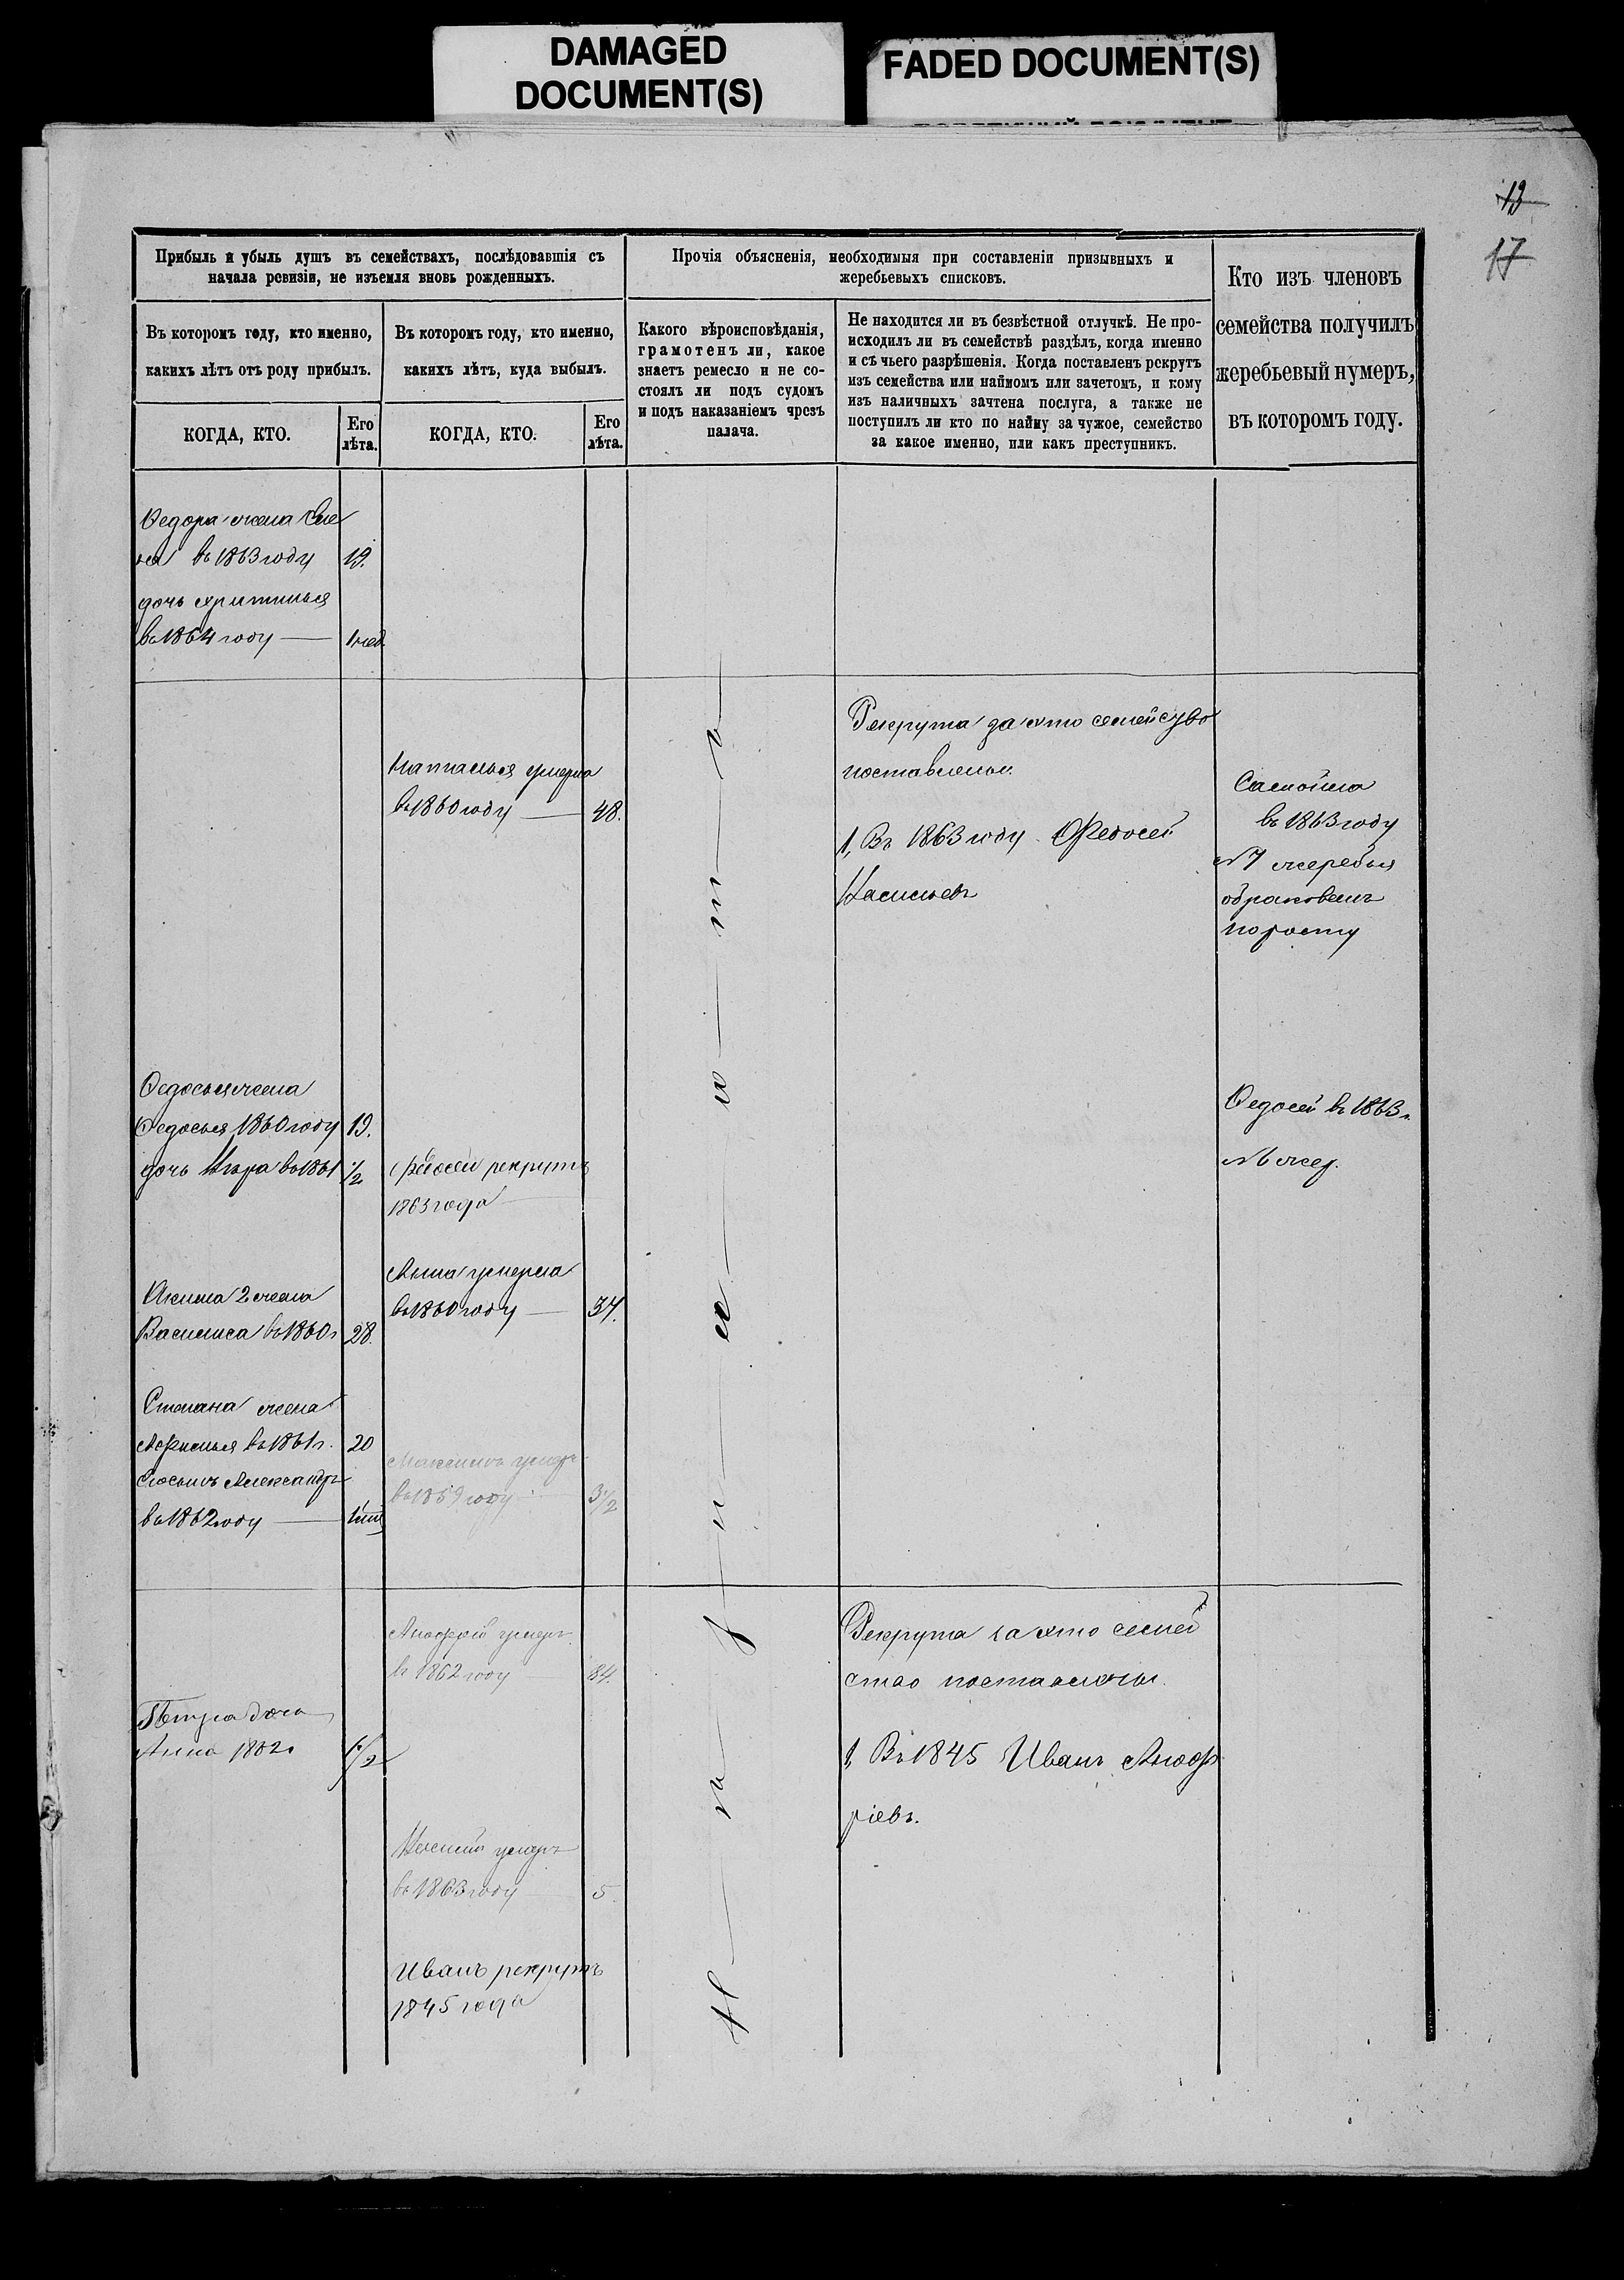 DAMAGED
DOCUMENT(S)
FADED DOCUMENT(S)
13
17
Прибыль и убыль душъ въ семействахъ, послѣдовавшія съ
начала ревизіи, не изъемля вновь рожденныхъ.
Прочія объясненія, необходимыя при составленіи призывныхъ и
жеребьевыхъ списковъ.
Кто изъ членовъ
семейства получилъ
жеребьевый нумеръ,
въ которомъ году.
Въ которомъ году, кто именно,
какихъ лѣтъ отъ роду прибылъ.
Въ которомъ году, кто именно,
какихъ лѣтъ, куда выбылъ.
Какого вѣроисповѣданія,
грамотенъ ли, какое
знаетъ ремесло и не со-
стоялъ ли подъ судомъ
и подъ наказаніемъ чрезъ
палача.
Не находится ли въ безвѣстной отлучкѣ. Не про-
исходилъ ли въ семействѣ раздѣлъ, когда именно
и съ чьего разрѣшенія. Когда поставленъ рекрутъ
изъ семейства или наймомъ или зачетомъ, и кому
изъ наличныхъ зачтена послуга, а также не
поступилъ ли кто по найму за чужое, семейство
за какое именно, или какъ преступникъ.
КОГДА, КТО.
Его
лѣта.
КОГДА, КТО.
Его
лѣта.
Федора жена Еле
на въ 1863 году 19.
дочь
въ 1864 году 1 нед.
Наталья умерла
въ 1860 году 48.
Рекрута за это семейство
поставлены.
1, Въ 1863 году Федосей
Самойла
въ 1863 году
№ 7 жеребья
обракованъ
по росту
жена
Федосья 1860 году 19.
дочь въ 1861 1/2
Федосей рекрутъ
1863 года
Федосей въ 1863 г.
№ жер.
Анна умерла
въ 1860 году 34.
Акима 2 жена
Василиса въ 1860 г 28.
Степана жена
въ 1861 г. 20
Александръ
въ 1862 году
Максимъ умеръ
въ 1859 году 3 1/2
умеръ
въ 1862 году 84.
Рекрута за это семей
ство поставлены.
Петра дочь
Анна 1862 г 1/2
1, Въ 1845 Иванъ Аноф
ріевъ.
умеръ
въ 1863 году 5.
Иванъ рекрутъ
1845 года